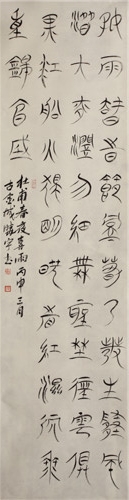 好雨知時節當春乃發生隨風
潛入夜潤物細無聲野徑雲俱
黑江船火獨明曉看紅濕處花
重錦官城
杜甫春夜喜雨丙申三月